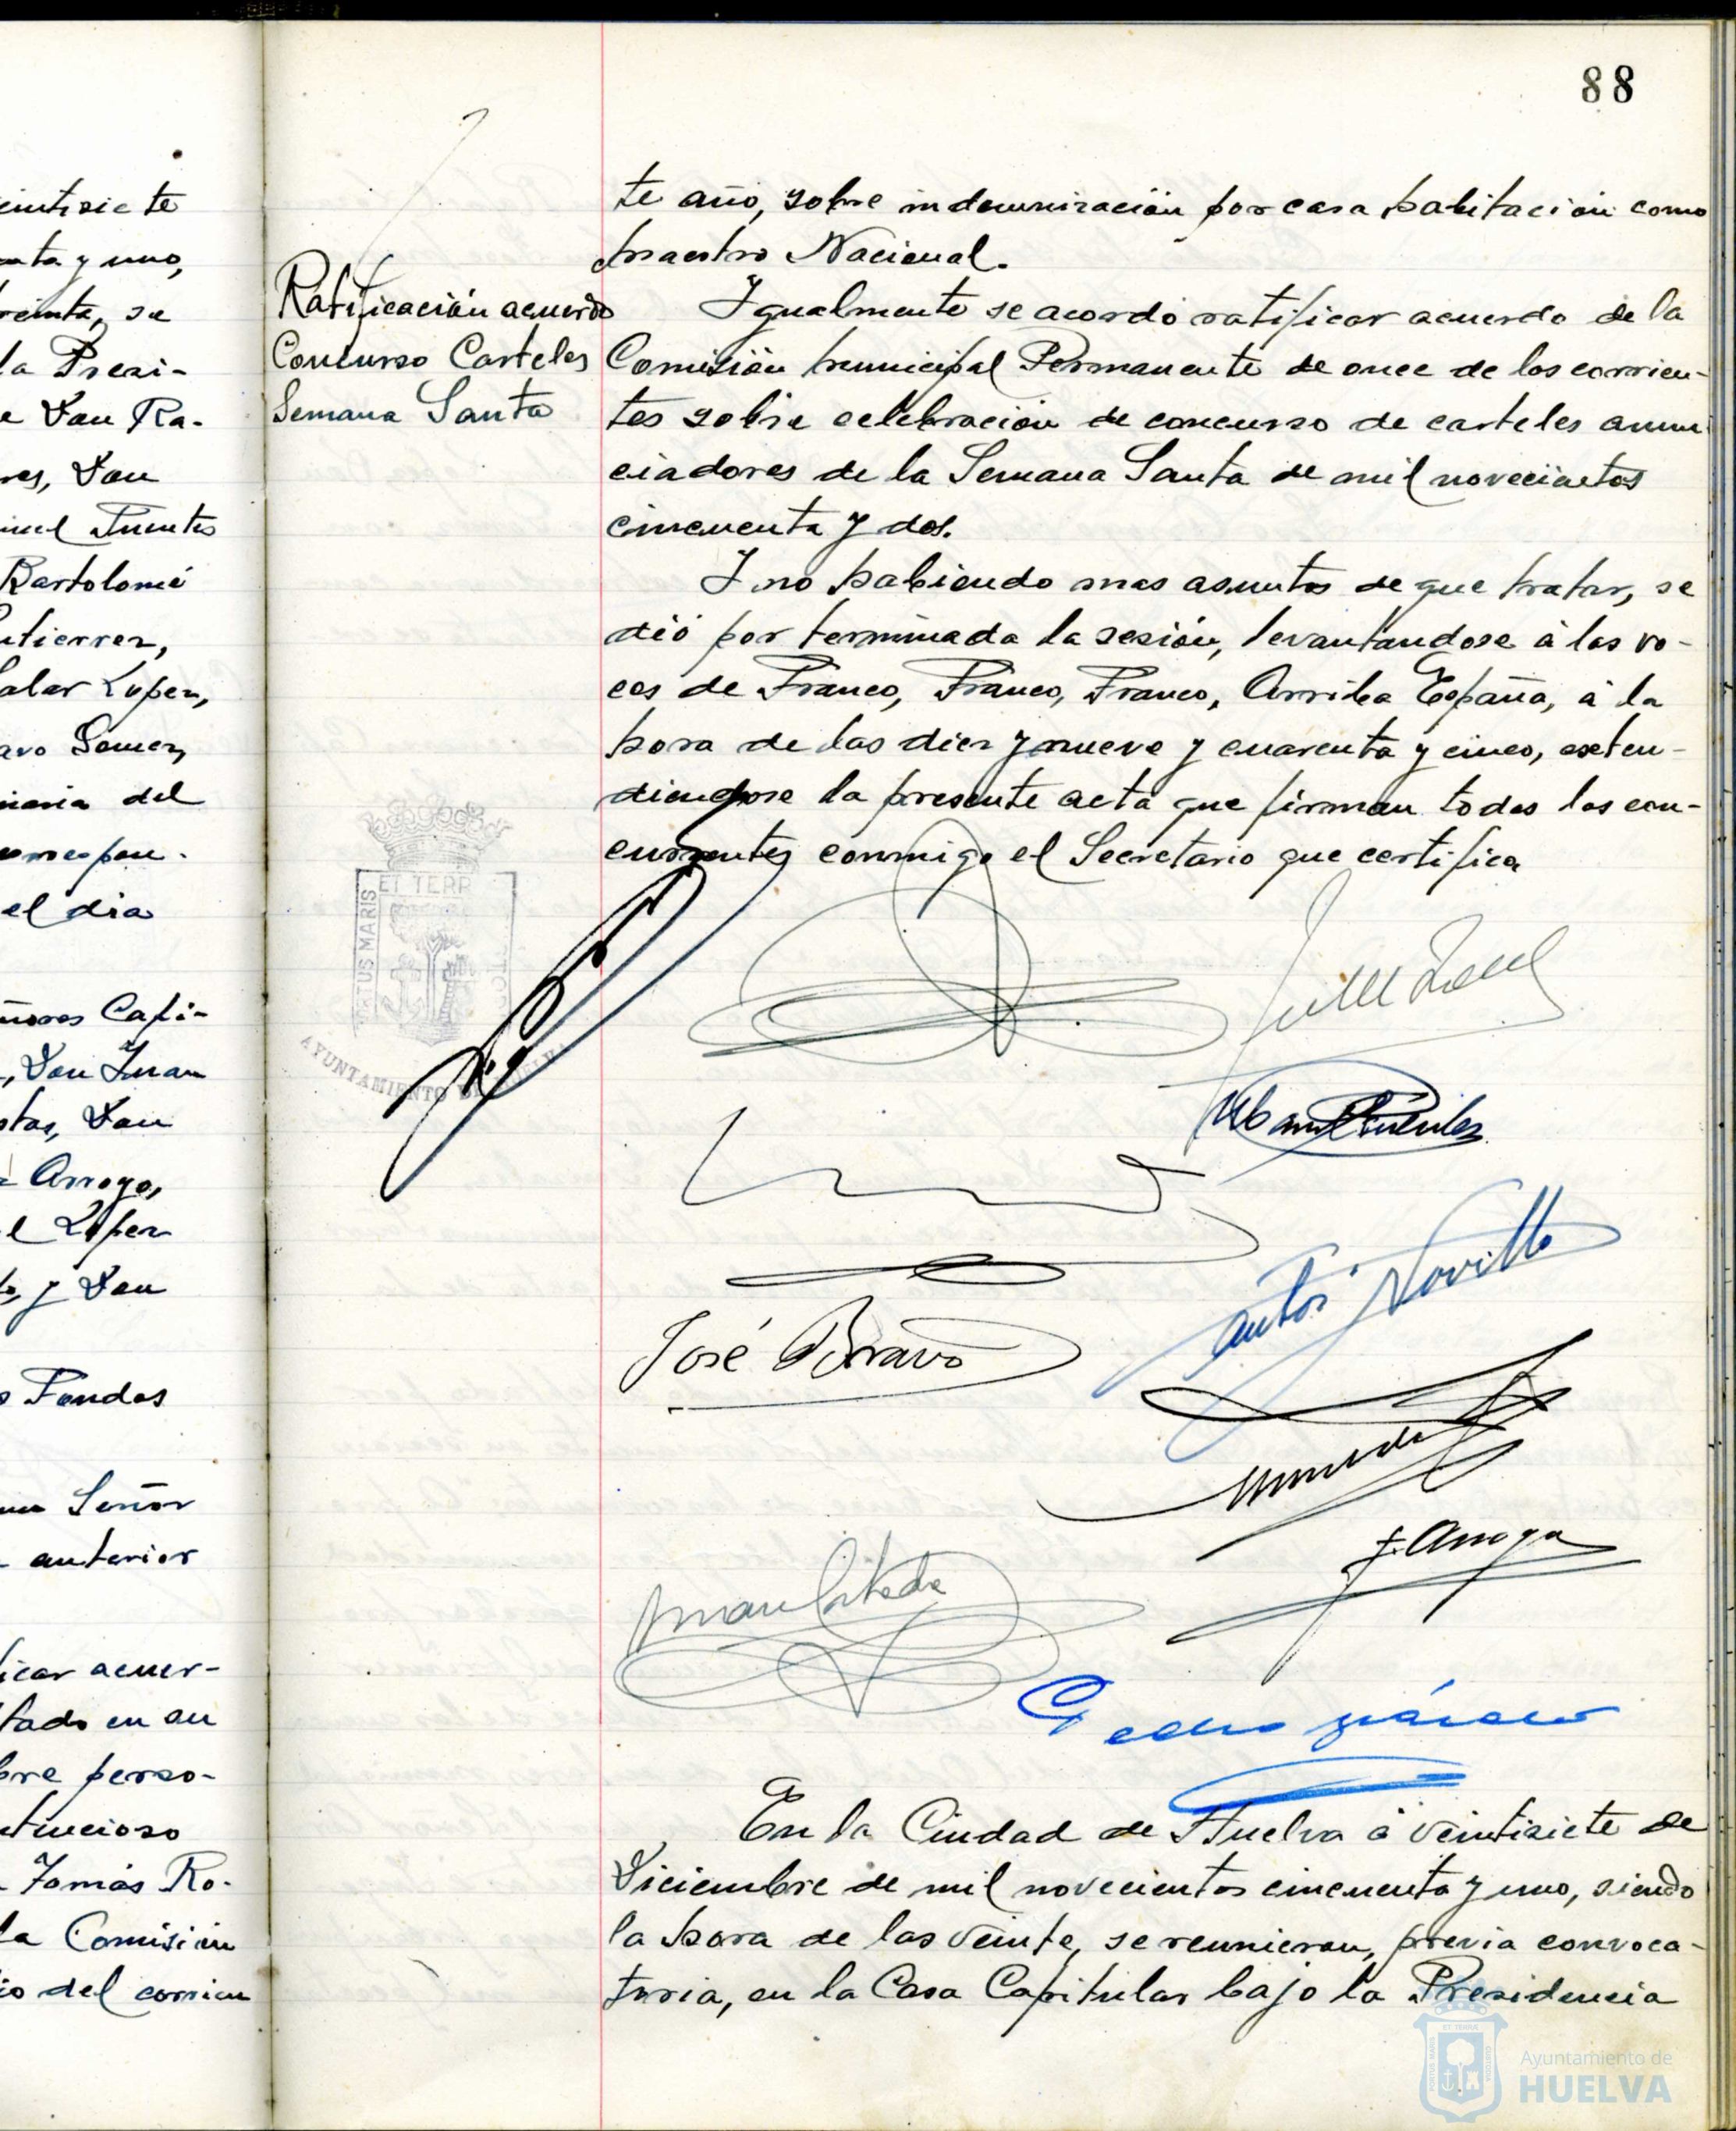 eintisiete
nta y uno,
reinta, se
la Presi-
e Don Ra-
res, Don
nuel Fuentes
Bartolomé
utierrez,
alar Lopez,
avo Gomez,
naria del
correspon-
el dia
ñores Capi-
, Don Juan
stas, Don
Arroyo,
l Lopez
y Don
s Fondos
Señor
anterior
icar acuer-
tado en su
bre perso-
tencioso
Tomás Ro-
la Comisión
io del corrien
88
te año, sobre indemnización por casa habitación como
Maestro Nacional.
Ratificación acuerdo
Concurso Carteles
Semana Santa
Igualmente se acordó ratificar acuerdo de la
Comisión Municipal Permanente de once de los corrien-
tes sobre celebración de concurso de carteles anun
ciadores de la Semana Santa de mil novecientos
cincuenta y dos.
Y no habiendo mas asuntos de que tratar, se
dió por terminada la sesión, levantandose á las vo-
ces de Franco, Franco, Franco, Arriba España, á la
hora de las diez y nueve y cuarenta y cinco, exten-
diendose la presente acta que firman todos los con-
currentes conmigo el Secretario que certifica
ET TERR
TUS MARIS
AYUNTAMIENTO DE
Manuel Fuentes
Antº Novillo
José Bravo
J. Arroyo
Juan Quintada
Pedro
En la Ciudad de Huelva á veintisiete de
Diciembre de mil novecientos cincuenta y uno, siendo
la hora de las veinte, se reunieron, previa convoca-
toria, en la Casa Capitular bajo la Presidencia
Ayuntamiento de
HUELVA